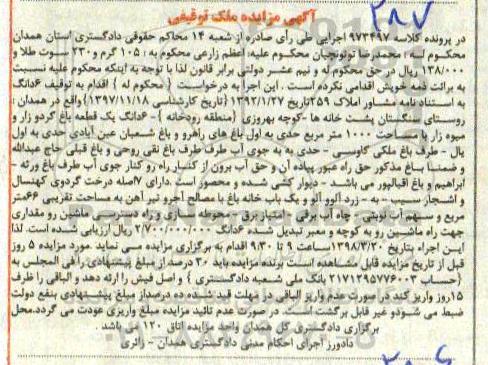 ۳۸۷
آگهی مزایده ملک توقیفی
در پرونده کلاسه ۹۷۳۴۹۷ اجرایی طی رأی صادره از شعبه ۱۴ محاکم حقوقی دادگستری استان همدان
محکوم له: محمدرضا توتونچیان محکوم علیه: اعظم زارعی محکوم به: ۱۰۵ گرم و ۲۳۰ سوت طلا و
۱۳۸/۰۰۰ ریال در حق محکوم له و نیم عشر دولتی برابر قانون لذا با توجه به اینکه محکوم علیه نسبت
به برائت ذمه خویش اقدامی نکرده است. این اجرا به درخواست {محکوم له} اقدام به توقیف ۶دانگ
به استناد نامه مشاور املاک ۲۵۹تاریخ ۱۳۹۲/۱/۲۷ {تاریخ کارشناسی ۱۳۹۷/۱۱/۱۸}واقع در همدان:
روستای سنگستان پشت خانه ها -کوچه بهروزی {منطقه رودخانه} -۶دانگ یک قطعه باغ گردو زار و
میوه زار با مساحت ۱۰۰۰ متر مربع حدی به اول باغ های راهرو و باغ شعبان عین آبادی حدی به اول
یال - طرف باغ ملکی کاوسی - حدی به به جوی آب طرف طرف باغ نقی روحی و باغ قبلی حاج عبدالله
و ضمنا باغ مذکور حق راه عبور پیاده آن و حق آب برون از کنار راه رو کنار جوی آب طرف باغ ورثه -
ابراهیم و باغ اقبالپور می باشد - دیوار کشی شده و محصور است .دارای ۷اصله درخت گردوی کهنسال
و اشجار سیب - به - زرد آلوو آلو و یک باب خانه باغ با مصالح آجرو تیر آهن به مساحت تقریبی ۶۶متر
مربع و سهم آب نوبتی - چاه آب برقی - امتیاز برق - محوطه سازی و راه دسترسی ماشین رو مقداری
جهت راه ماشین رو به کوچه و معبر تبدیل شده ۶دانگ ۲/۷۰۰/۰۰۰/۰۰۰ ریال ارزیابی شده است. لذا
این اجراء بتاریخ ۱۳۹۸/۳/۲۰ساعت ۹ تا ۹:۳۰ اقدام به برگزاری مزایده می نماید .مورد مزایده ۵ روز
قبل از تاریخ مزایده قابل مشاهده است برنده مزایده باید ۲۰ درصد از مبلغ پیشنهادی رافی المجلس به
{حساب ۲۱۷۱۲۹۵۷۷۶۰۰۳ بانک ملی شعبه دادگستری} و اصل فیش را ارئه دهد و الباقی را ظرف
۱۵روز واریز کند در صورت عدم واریز الباقی در مهلت قید شده ده درصداز مبلغ پیشنهادی بنفع دولت
ضبط می شودو غیر قابل برگشت است. در صورت عدم تائید مزایده مبلغ واریزی عودت می گردد.محل
برگزاری دادگستری کل همدان واحد مزایده اتاق ۱۲۰ می باشد .
دادورز اجرای احکام مدنی دادگستری همدان - زائری